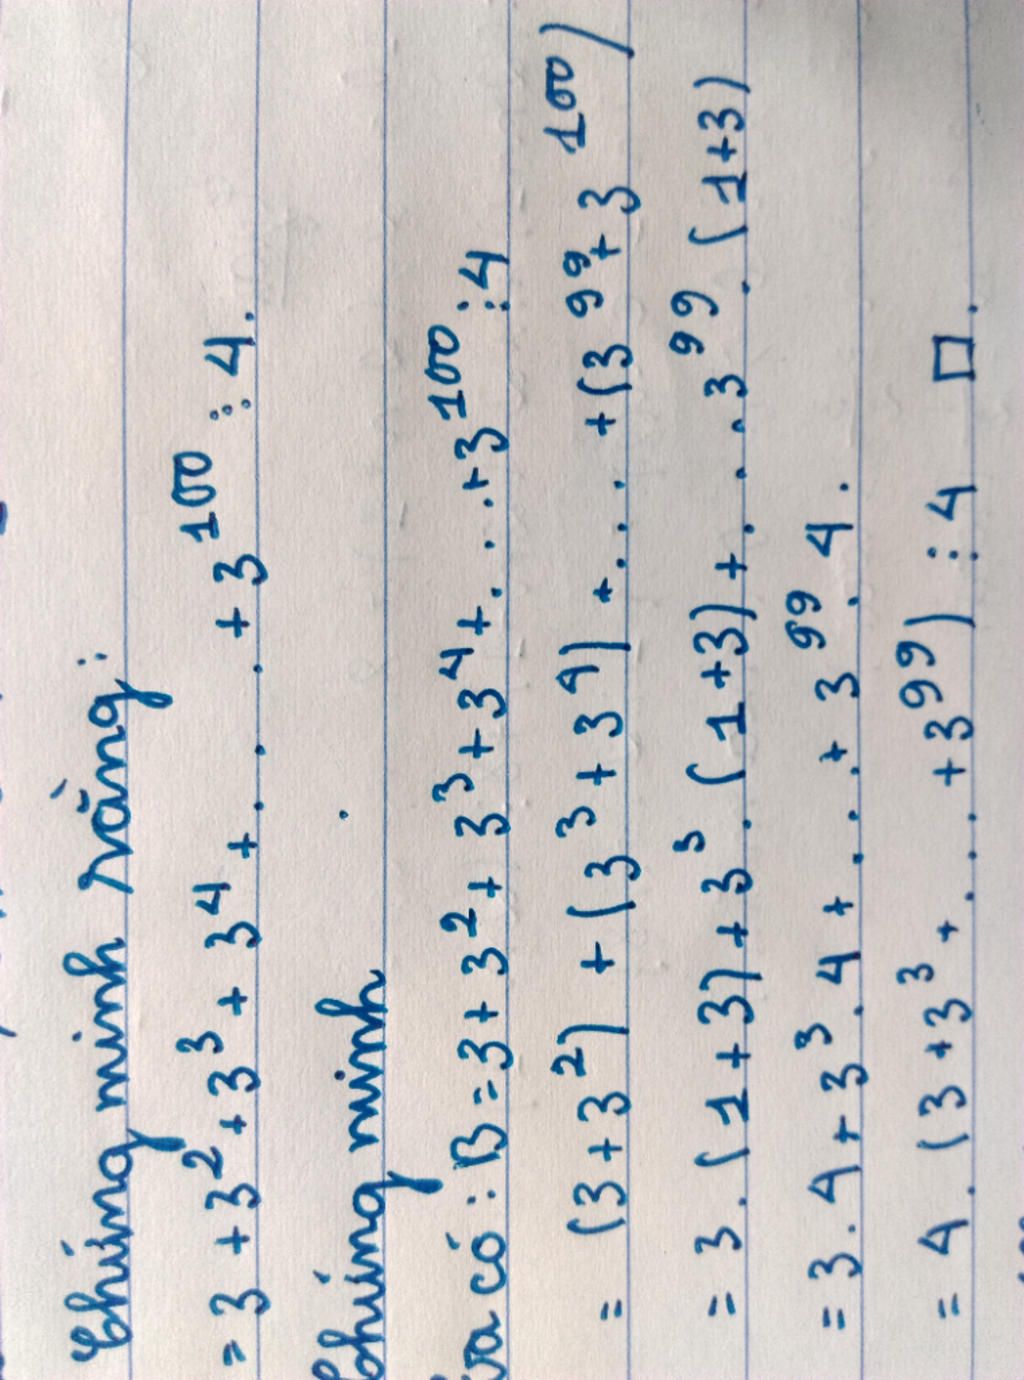 Chứng minh rằng:
= 3 + 3² + 3³ + 3⁴ + . . . . + 3¹⁰⁰ ⋮ 4.
Chứng minh
Ta có: B = 3 + 3² + 3³ + 3⁴ + . . . + 3¹⁰⁰ ⋮ 4
= (3 + 3²) + (3³ + 3⁴) + . . . + (3⁹⁹ + 3¹⁰⁰)
= 3 . (1 + 3) + 3³ . (1 + 3) + . . . 3⁹⁹ . (1 + 3)
= 3 . 4 + 3³ . 4 + . . . + 3⁹⁹ . 4 .
= 4 . (3 + 3³ + . . . + 3⁹⁹) ⋮ 4 □ .